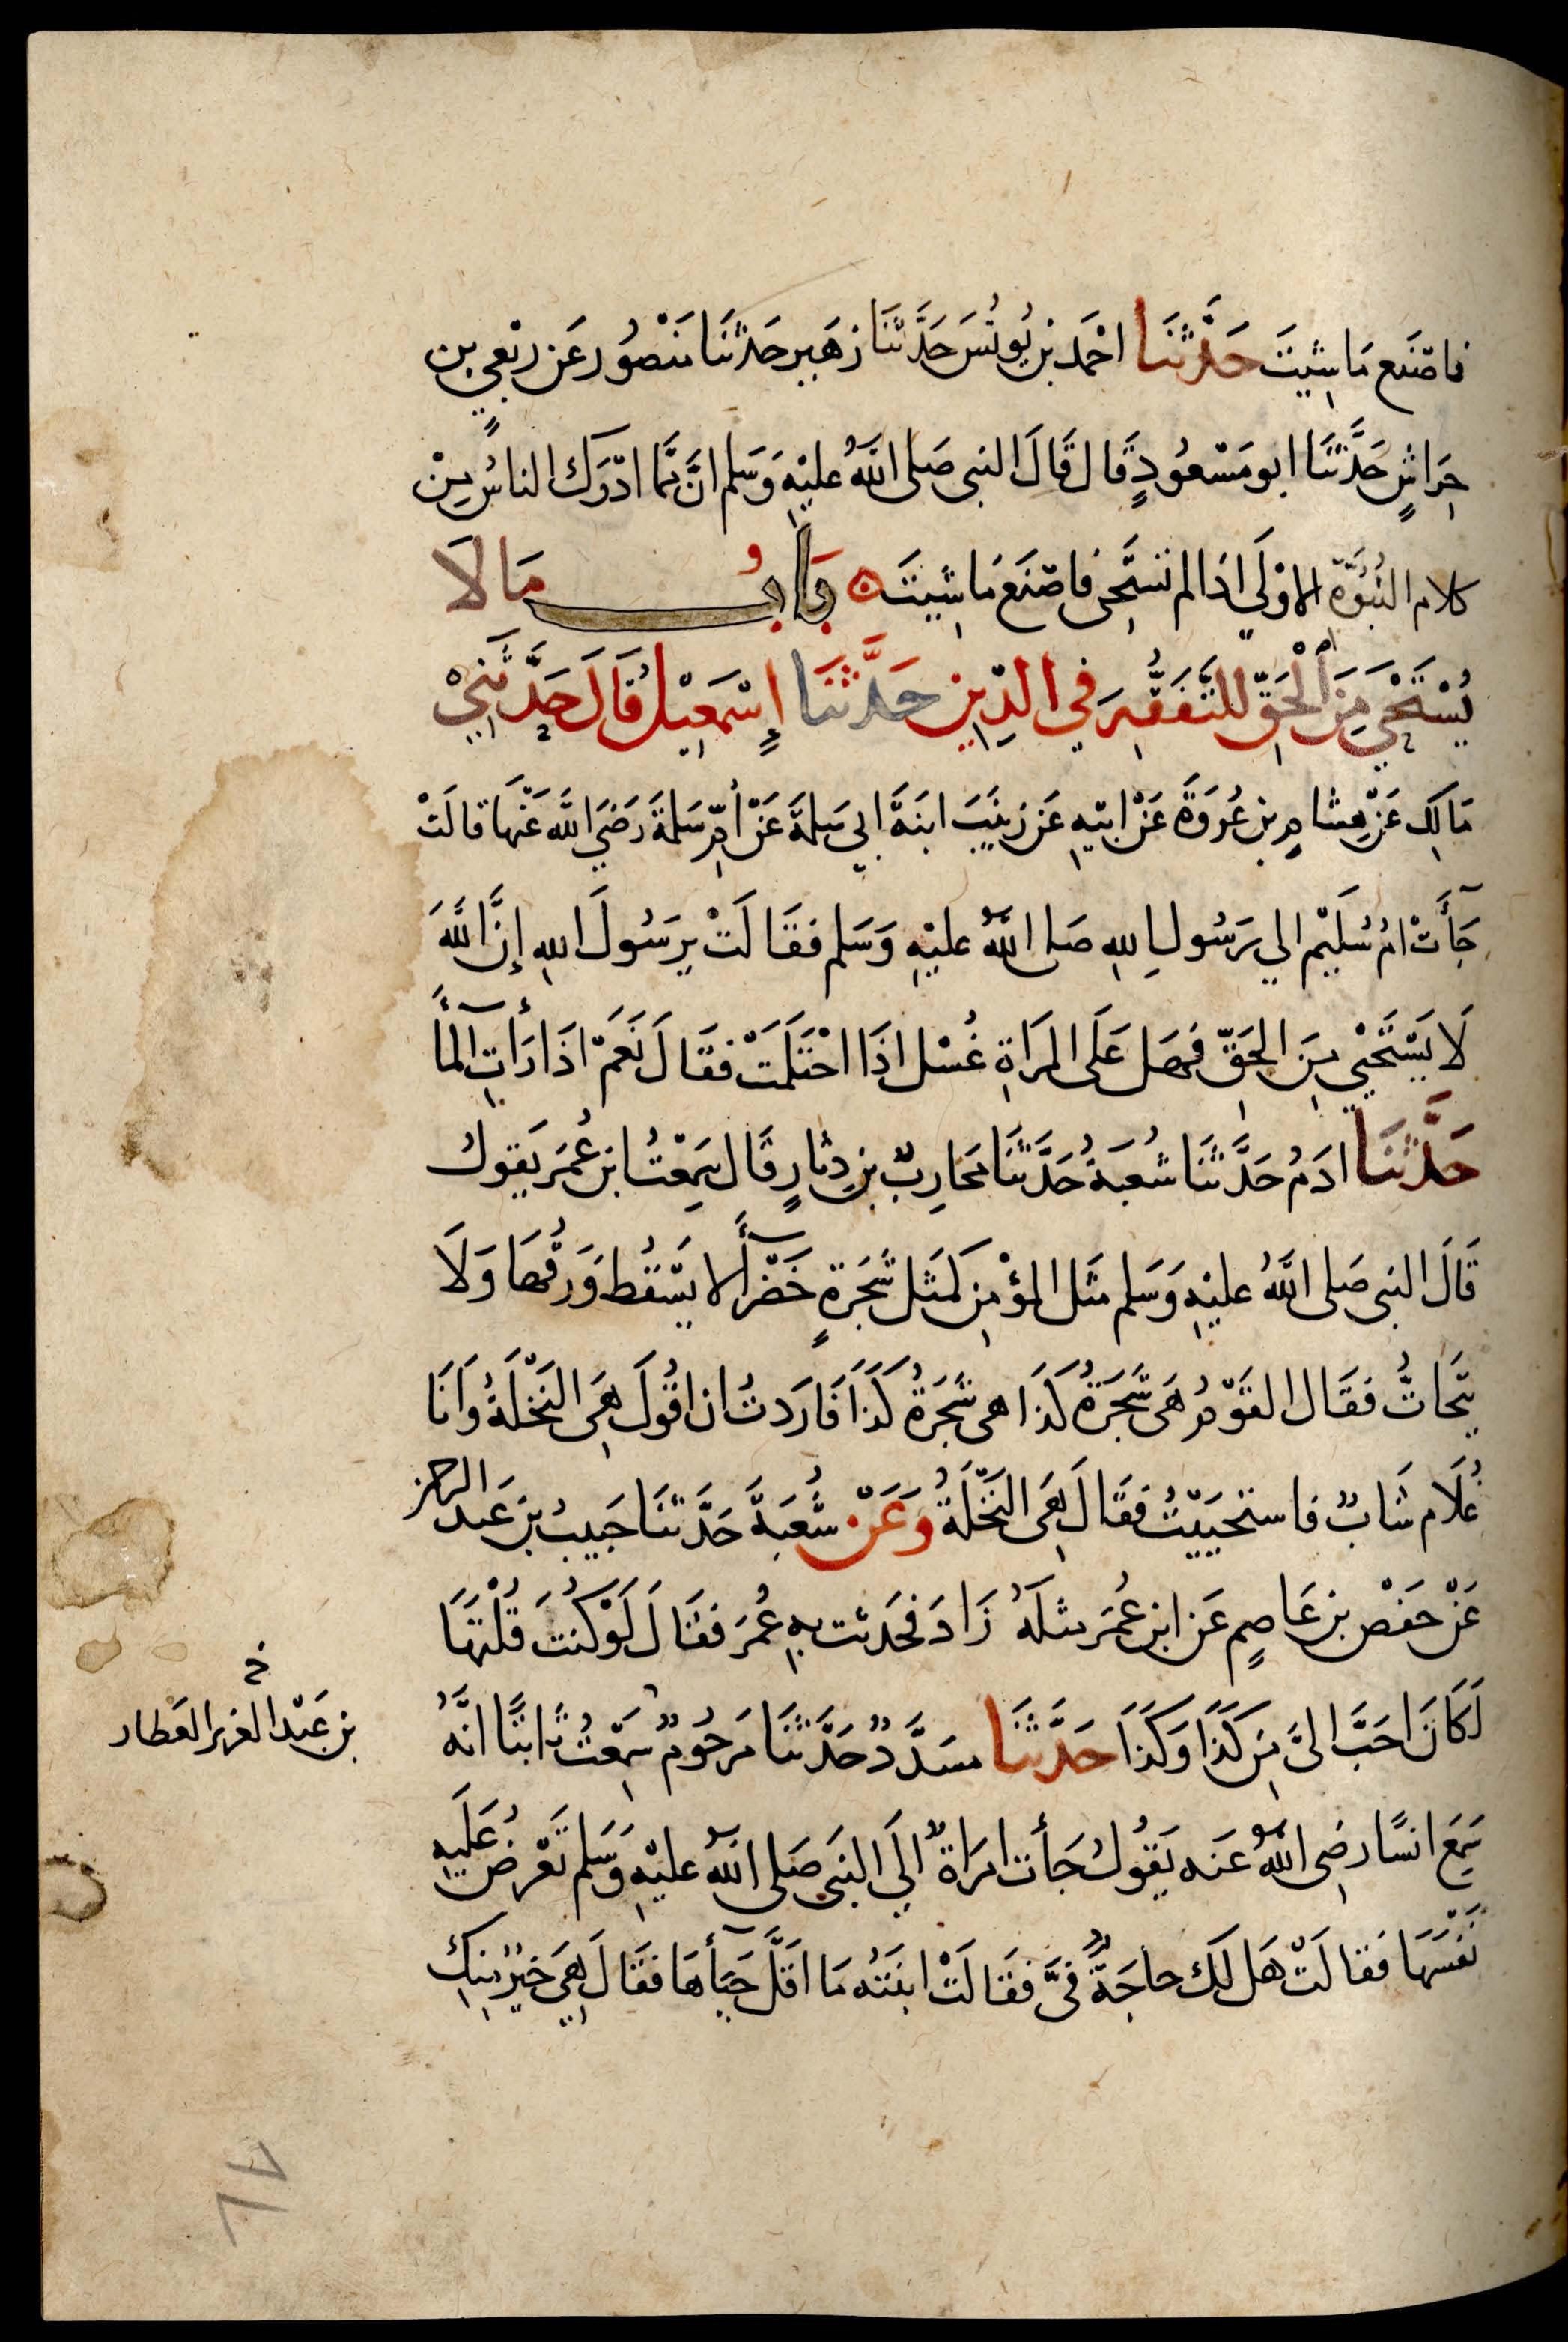 فاصْنَع مَا شِيتَ حَدَّثنَا احْمَد بن يُونُسَ حَدَّثنَا زهَير حَدثنَا مَنْصُور عَن رِبْعي بن
حِرَاشٍ حَدَّثنَا ابو مَسْعُودٍ قَال قَالَ النبى صَلى اللَّهُ عليْهِ وَسَلم انَّ مما ادْرَك الناسُ مِنْ
كلام النُّبُوَّةِ الاوْلَي اذا لم تسْتَحى فاصْنَع مَا شِيتَ بَابُ مَا لَا
يُسْتَحْيَي مِنَ الْحَقِّ للتَّفَقُّهِ في الدِّينِ حَدَّثنَا إِسْمَعِيْلُ قَالَ حَدَّثَنِيْ
مَالِك عَن هِشامِ بن عُروَةَ عَنْ ابيْهِ عَن زيْنَبَ ابنَةَ ابي سَلمَةَ عَنْ أمِّ سَلمَةَ رَضيَ اللَّه عَنْهَا قالَتْ
جَأَتْ امُ سُلَيْم الي رَسُولِ اللهِ صَلى اللَّهُ عليْهِ وَسَلم فقَالَتْ يرَسُولَ اللهِ إِنَّ اللَّهَ
لَا يَسْتَحْيِي مِنَ الحَقِّ فهَل عَلَى المَرَاةِ غُسْل اذَا احْتَلَمَتْ فقَالَ نَعَمْ اذَا رَأتِ المآءَ
حَدَّثنَا ادَمُ حَدَّثنَا شُعبَةُ حَدَّثنَا محَارِبُ بن دِثارٍ قَال سَمِعْتُ ابن عُمَر يَقولُ
قَالَ النبى صَلى اللَّهُ عليْهِ وَسَلم مثَل المؤْمِن كَمثَل شَجَرةٍ خَضْرآءَ لا يسْقُط وَرَقُهَا وَلَا
يَتَحَاتُّ فقَال القَوْمُ هىَ شَجَرَةُ كَذا هى شَجَرَةُ كَذَا فَارَدتُ ان اقُولَ هِىَ النَّخْلَةُ وَانَا
غُلَام شَابٌ فاستحيَيْتُ فقَالَ هِىَ النَّخْلَةُ وَعَنْ شُعبَةَ حَدَّثنَا خبيبُ بن عَبد الرحمن
عَنْ حَفْص بن عَاصِمٍ عَن ابن عُمَر مثلَهُ زَادَ فحَدثت بهِ عُمَر فقَالَ لَوْ كُنتَ قُلْتَهَا
لَكَانَ احَبَّ الىَّ مِن كَذَا وَكَذَا حَدَّثنَا مسَدَّدٌ حَدَّثنَا مَرحُومٌ سَمِعْتُ ثابتًا انَّهُ
خ
بن عَبْد العزيز العَطار
سَمِعَ انسًا رضِى اللَّهُ عَنه يَقُولُ جَأت امرَاةٌ الي النبَى صَلى اللَّهُ عليْهِ وَسَلم تَعْرِضُ عَلَيهِ
نَفْسَهَا فَقالَتْ هَل لَك حاجَةٌ فىَّ فقَالَتْ ابنَتُه مَا اقَلَّ حَيَأهَا فقَالَ هِيَ خيْرٌ مِنكِ
٨٧